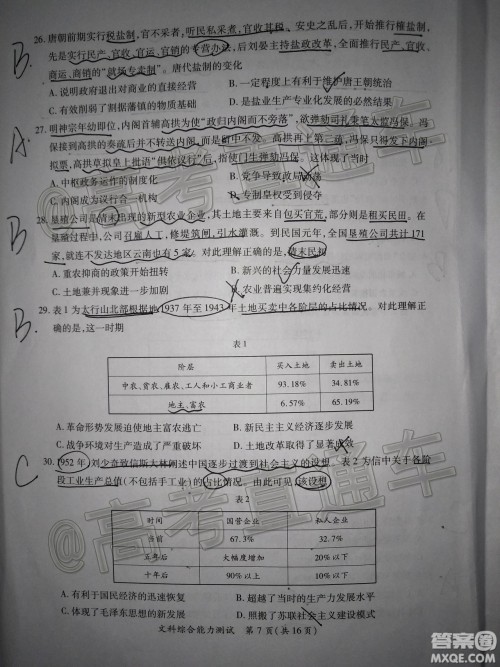 26. 唐朝前期实行税盐制,官不采者,听民私采煮,官收其税。安史之乱后,开始推行榷盐制,
先是实行民产、官收、官运、官销的专营办法,后刘晏主持盐政改革,全面推行民产、官收、
商运、商销的“就场专卖制”。唐代盐制的变化
B.
A. 说明政府退出对商业的直接经营
B. 一定程度上有利于维护唐王朝统治
C. 有效削弱了割据藩镇的物质基础
D. 是盐业生产专业化发展的必然结果
27. 明神宗年幼即位,内阁首辅高拱为使“政归内阁而不旁落”,欲弹劾司礼秉笔太监冯保。冯
A.
保接到高拱的奏疏后并不转送内阁,而是
高拱再上第二
,冯保只得发下内阁
拟票,高拱草拟皇上批语“俱依议行”后,指使门生弹劾冯保。这体现了当时
A. 中枢政务运作的制度化
B. 党争导致政局动荡
C. 内阁成为议行合一机构
D. 专制皇权受到侵夺
28. 垦殖公司是清末出现的新型农业企业,其土地主要来自包买官荒,部分则是租买民田。在
B
垦殖过程中,公司召雇人工,修堤筑闸,引水灌溉。到民国元年,全国垦殖公司共计 171
家,就连不发达地区云南也有 5 家。对此理解正确的是,清末民初
A. 重农抑商的政策开始扭转
B. 新兴的社会力量发展迅速
C. 土地兼并现象进一步加剧
D. 农业普遍实现集约化经营
29. 表 1 为太行山北部根据地 1937 年至 1943 年土地买卖中各阶层的占比情况。对此理解正
B.
确的是,这一时期
表 1
阶层 买入土地 卖出土地
中农、贫农、雇农、工人和小工商业者 93.18% 34.81%
地主、富农 6.57% 65.19%
A. 革命形势发展迫使地主富农逃亡
B. 新民主主义经济逐步发展
C. 战争环境对生产造成了严重破坏
D. 土地改革取得了显著成效
C
30. 1952 年,刘少奇致信斯大林阐述中国逐步过渡到社会主义的设想。表 2 为信中关于各阶
段工业生产总值(不包括手工业)的占比情况。由此可见,该设想
表 2
时间 国营企业 私人企业
当前 67.3% 32.7%
五年后 大幅度增加 20%以下
十年后 90%以上 10%以下
A. 有利于国民经济的迅速恢复
B. 超越了当时的生产力发展水平
C. 体现了毛泽东思想的新发展
D. 照搬了苏联社会主义建设模式
文科综合能力测试 第 7 页(共 16 页)
@高考直通车
@高考直通车
答案圈
MXQE.COM